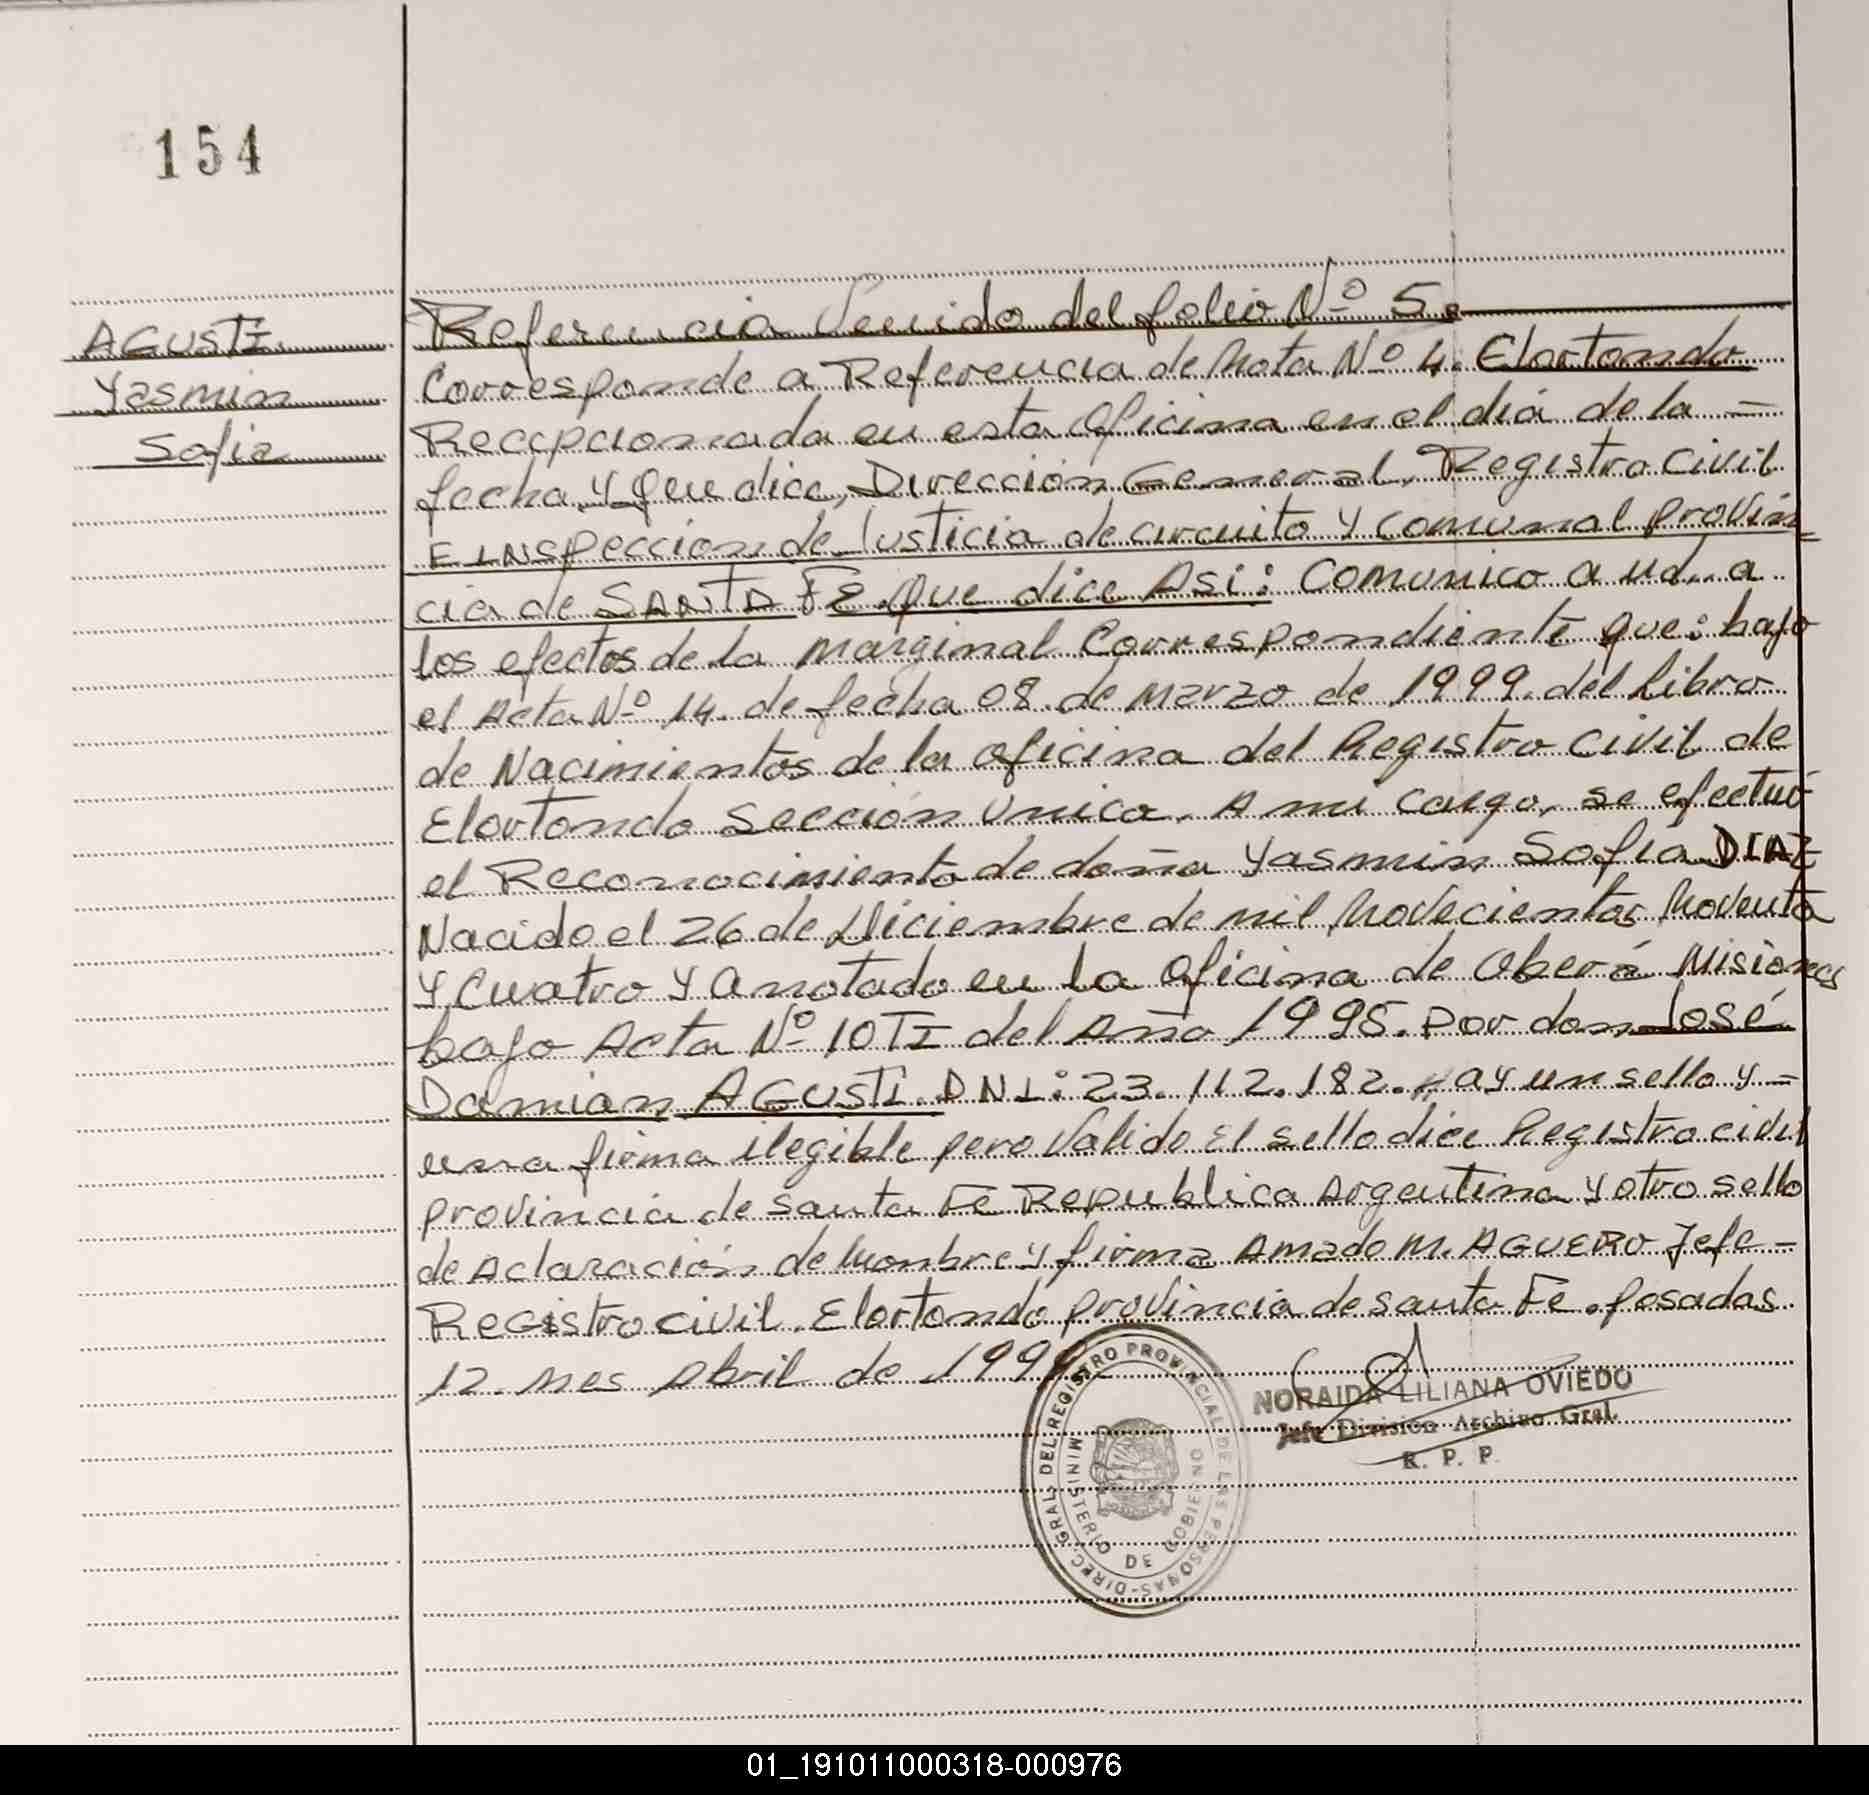 154
AGUSTI
Yasmin
Sofia
Referencia Venido del folio Nº 5.
Corresponde a Referencia de Nota Nº 4. Elortondo
Recepcionada en esta Oficina en el diá de la —
fecha y que dice, Dirección General, Registro Civil
E INSPeccion de Justicia de circuito Y comunal provin
cia de SANTA FE. que dice Asi: Comunico a ud.. a
los efectos de la marginal Correspondiente que: bajo
el Acta Nº 14. de fecha 08. de Marzo de 1999. del libro
de Nacimientos de la oficina del Registro civil de
Elortondo Sección Unica. A mi cargo, se efectuó
el Reconocimiento de doña Yasmin Sofia DIAZ
Nacido el 26 de Diciembre de mil Novecientos Noventa
Y Cuatro Y anotado en la oficina de Oberá Misiones
bajo Acta Nº 10 TI del Año 1995. por don José
Damian AGUSTI. DNI: 23. 112. 182. Hay un sello y —
una firma ilegible pero Valido El sello dice Registro civil
provincia de Santa Fe Republica Argentina y otro sello
de Aclaración de Nombre y firma Amado M. AGUERO Jefe —
Registro civil. Elortondo provincia de Santa Fe. posadas
12. mes Abril de 1999
DIREC. GRAL. DEL REGISTRO PROVINCIAL DE LAS PERSONAS-
MINISTERIO DE GOBIERNO
NORAIDA LILIANA OVIEDO
Jefe División Archivo Gral.
R. P. P.
01_191011000318-000976